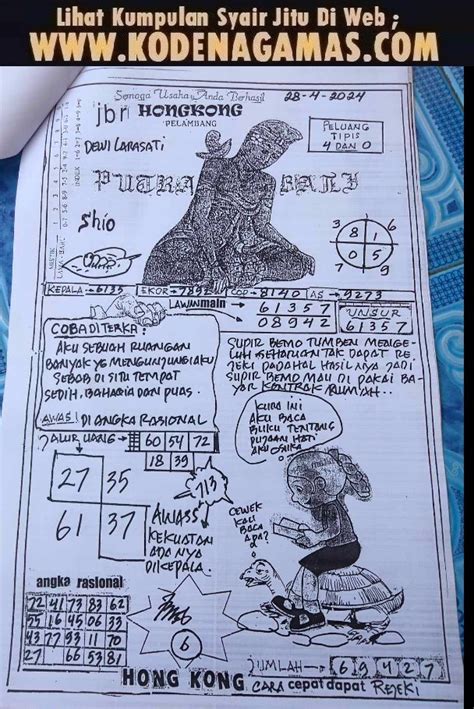 Lihat Kumpulan Syair Jitu Di Web ;
WWW.KODENAGAMAS.COM
Semoga Usaha Anda Berhasil
28-4-2024
jbri HONGKONG
PELAMBANG
DEWI LARASATI
PUTRA BALI
PELUANG
TIPIS
4 DAN 0
Shio
3 6
8 1
0 5
7 9
KEPALA = 6135
EKOR = 7892
COP = 8140
AS = 9273
LAWAN main
61357
08942
UNSUR
61357
COBA DI TERKA:
AKU SEBUAH RUANGAN
BANYAK YG MENGUNJUNGI AKU
SEBAB DI SITU TEMPAT
SEDIH, BAHAGIA DAN PUAS.
AWAS! DI ANGKA RASIONAL
SUPIR BEMO TUMBEN MENGE-
LUH SEHARIAN TAK DAPAT RE-
JEKI PADAHAL HASIL NYA JADI
SUPIR BEMO MAU DI PAKAI BA-
YAR KONTRAK RUMAH..
JALUR UANG
60 54 72
18 39
KURA INI
AKU BACA
BUKU TENTANG
PUJAAN HATI
AKU
27 35
61 37
713
AWASS
KEKUATAN
ADA NYA
DIKEPALA.
CEWEK
KALI
BACA
APA?
angka rasional
72 41 73 83 62
16 45 06 33
43 77 93 11 70
27 66 53 81
6
JUMLAH
6 9 4 2 7
HONG KONG CARA cepat dapat REJEKI